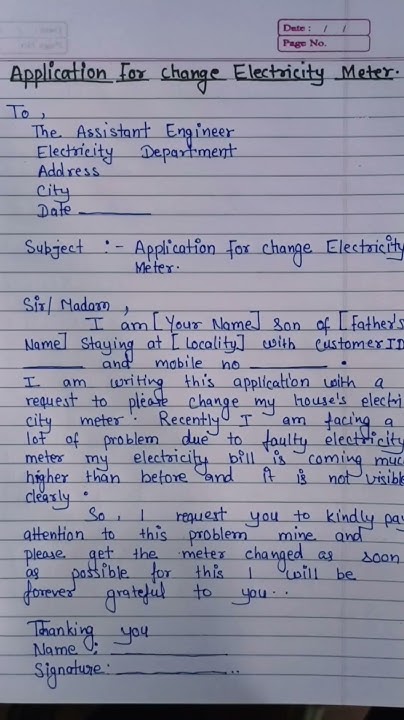 Date : / /
Page No.
Application For change Electricity Meter.
To ,
The Assistant Engineer
Electricity Department
Address
City
Date ________
Subject :- Application For change Electricity
Meter.
Sir/ Madam ,
I am [Your Name] son of [Father's
Name] Staying at [Locality] with Customer ID
________ and mobile no ________ .
I am writing this application with a
request to please change my house's electri
city meter. Recently I am facing a
lot of problem due to faulty electricity
meter my electricity bill is coming muc
higher than before and it is not visible
clearly .
So, I request you to kindly pay
attention to this problem mine and
please get the meter changed as soon
as possible for this I will be
forever grateful to you..
Thanking you
Name : ____________
Signature: ____________..